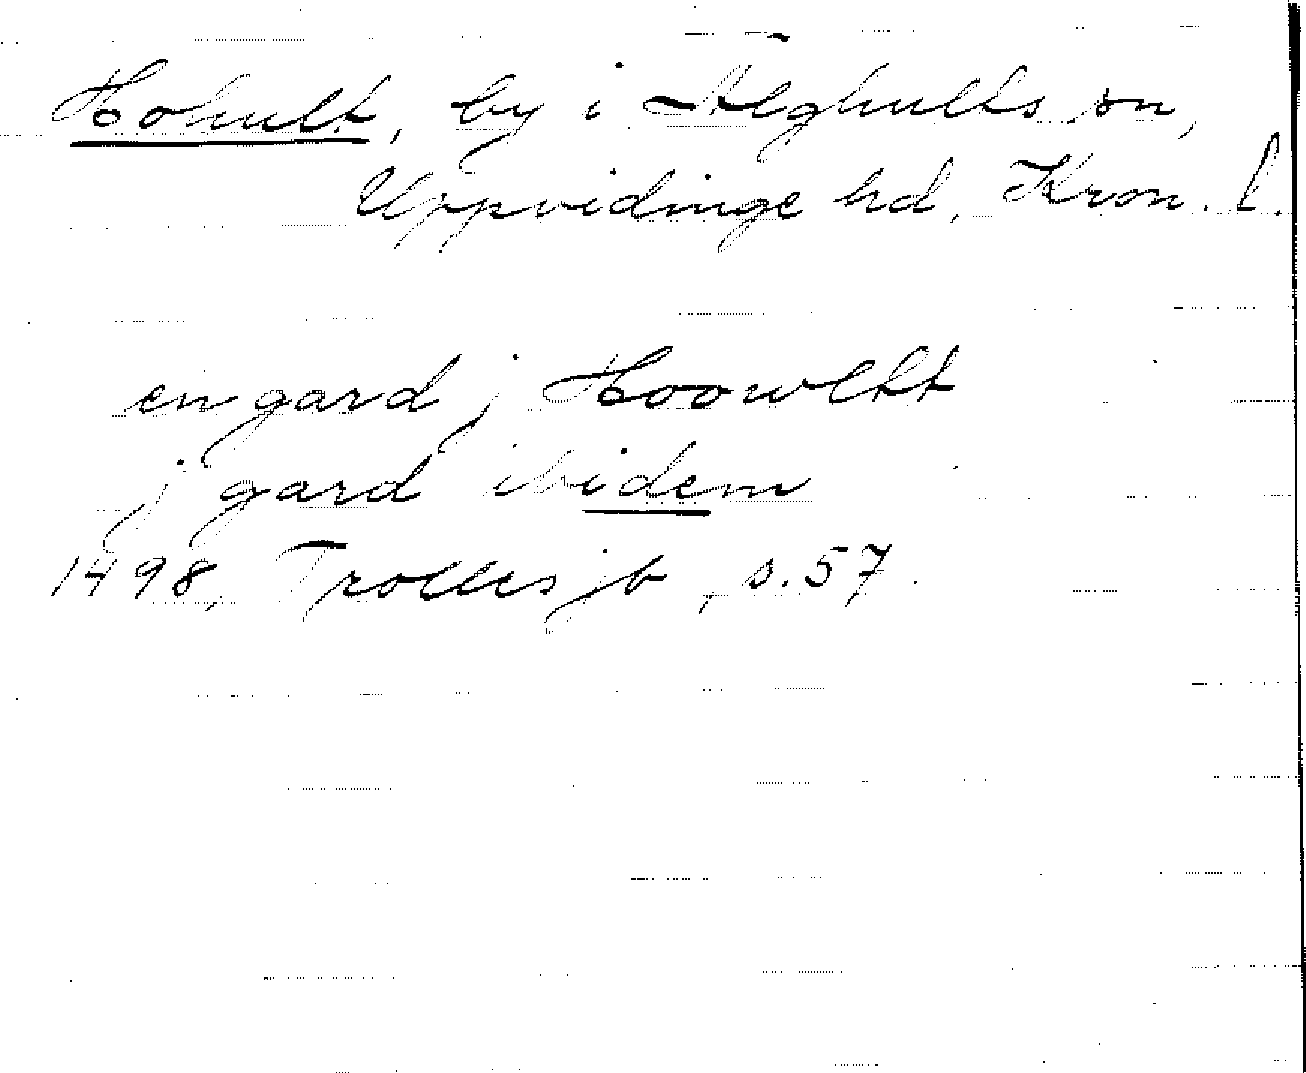 Hohult, by i Älghults sn,
Uppvidinge hd, Kron. l.
en gard j Hoowltt
j gard ibidem
1498, Trolles jb, s. 57.